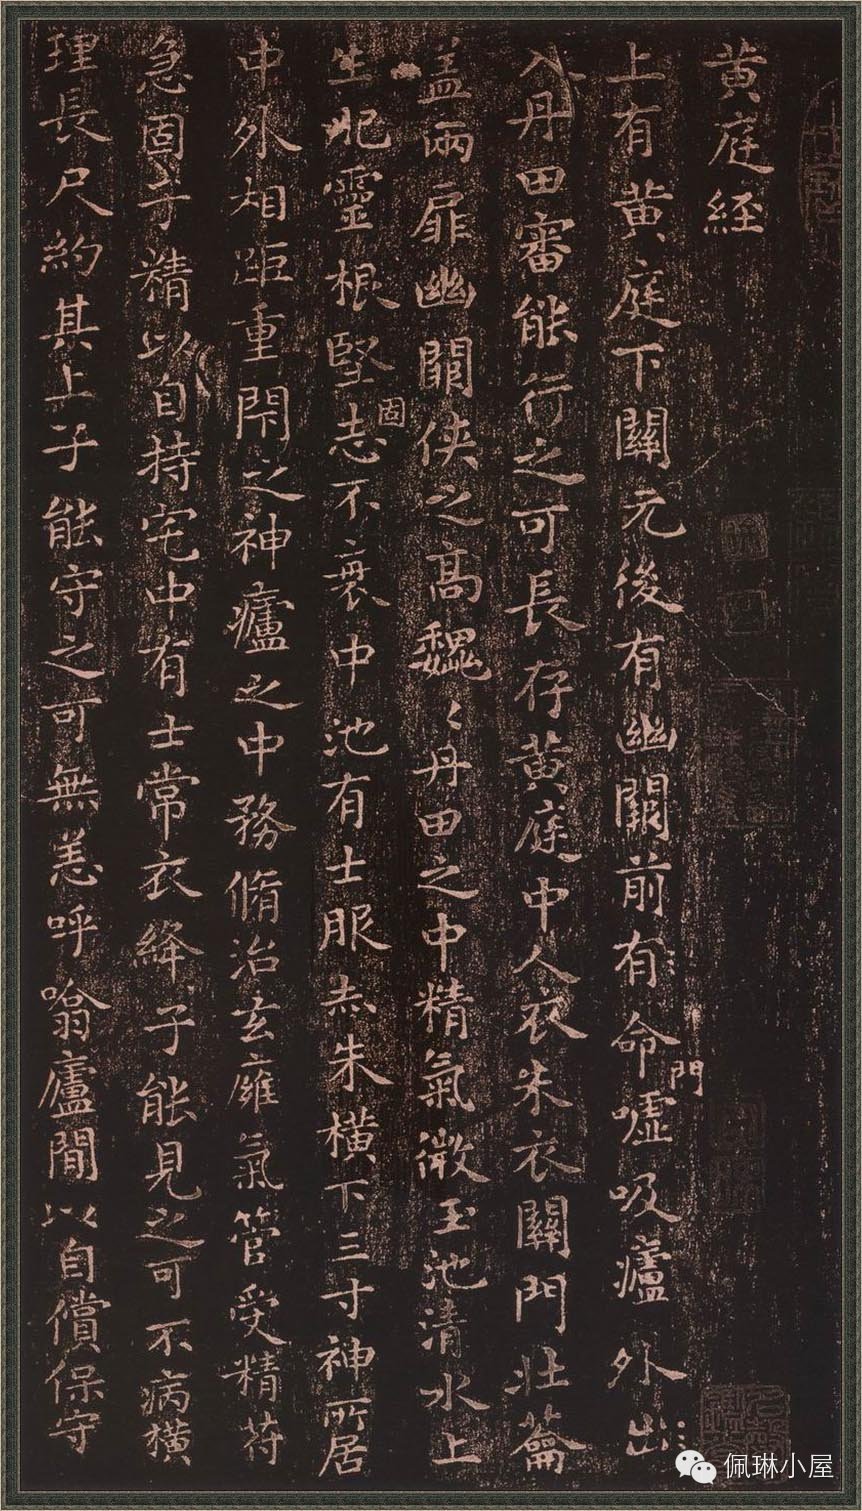 黄庭経
上有黄庭下關元後有幽闕前有命門嘘吸廬外出
入丹田審能行之可長存黄庭中人衣朱衣關門壯籥
盖兩扉幽闕俠之高魏〻丹田之中精氣微玉池清水上
生肥靈根堅固志不衰中池有士服赤朱横下三寸神所居
中外相距重閇之神廬之中務脩治玄廱氣管受精苻
急固子精以自持宅中有士常衣絳子能見之可不病横
理長尺約其上子能守之可無恙呼噏廬間以自償保守
佩琳小屋